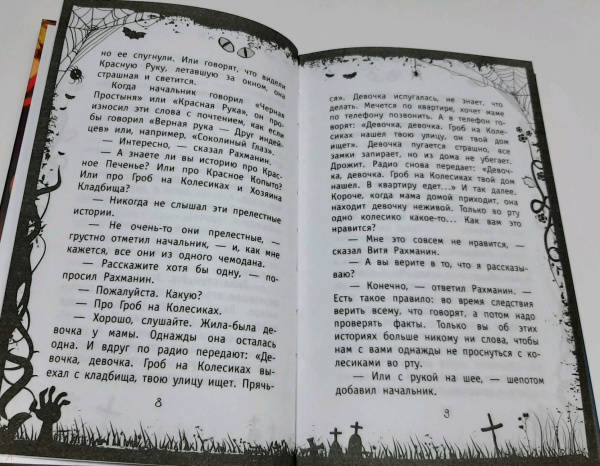 но ее спугнули. Или говорят, что видели
Красную Руку, летавшую за окном, она
страшная и светится.
Когда начальник говорил «Черная
Простыня» или «Красная Рука», он про-
износил эти слова с почтением, как если
бы говорил «Верная рука — Друг индей-
цев» или, например, «Соколиный Глаз».
— Интересно, — сказал Рахманин.
— А знаете ли вы историю про Крас-
ное Печенье? Или про Красное Копыто?
Или про Гроб на Колесиках и Хозяина
Кладбища?
— Никогда не слышал эти прелестные
истории.
— Не очень-то они прелестные, —
грустно отметил начальник, — и, как мне
кажется, все они из одного чемодана.
— Расскажите хотя бы одну, — по-
просил Рахманин.
— Пожалуйста. Какую?
— Про Гроб на Колесиках.
— Хорошо, слушайте. Жила-была де-
вочка у мамы. Однажды она осталась
одна. И вдруг по радио передают: «Де-
вочка, девочка. Гроб на Колесиках вы-
ехал с кладбища, твою улицу ищет. Прячь-
8
ся». Девочка испугалась, не знает, что
делать. Мечется по квартире, хочет маме
по телефону позвонить. А в телефон го-
ворят: «Девочка, девочка. Гроб на Коле-
сиках нашел твою улицу, он твой дом
ищет». Девочка пугается страшно, все
замки запирает, но из дома не убегает.
Дрожит. Радио снова передает: «Девоч-
ка, девочка. Гроб на Колесиках твой дом
нашел. В квартиру едет...» И так далее.
Короче, когда мама домой приходит, она
находит девочку неживой. Только во рту
одно колесико какое-то... Как вам это
нравится?
— Мне это совсем не нравится, —
сказал Витя Рахманин.
— А вы верите в то, что я рассказы-
ваю?
— Конечно, — ответил Рахманин. —
Есть такое правило: во время следствия
верить всему, что говорят, а потом надо
проверять факты. Только вы об этих
историях больше никому ни слова, чтобы
нам с вами однажды не проснуться с ко-
лесиками во рту.
— Или с рукой на шее, — шепотом
добавил начальник.
9